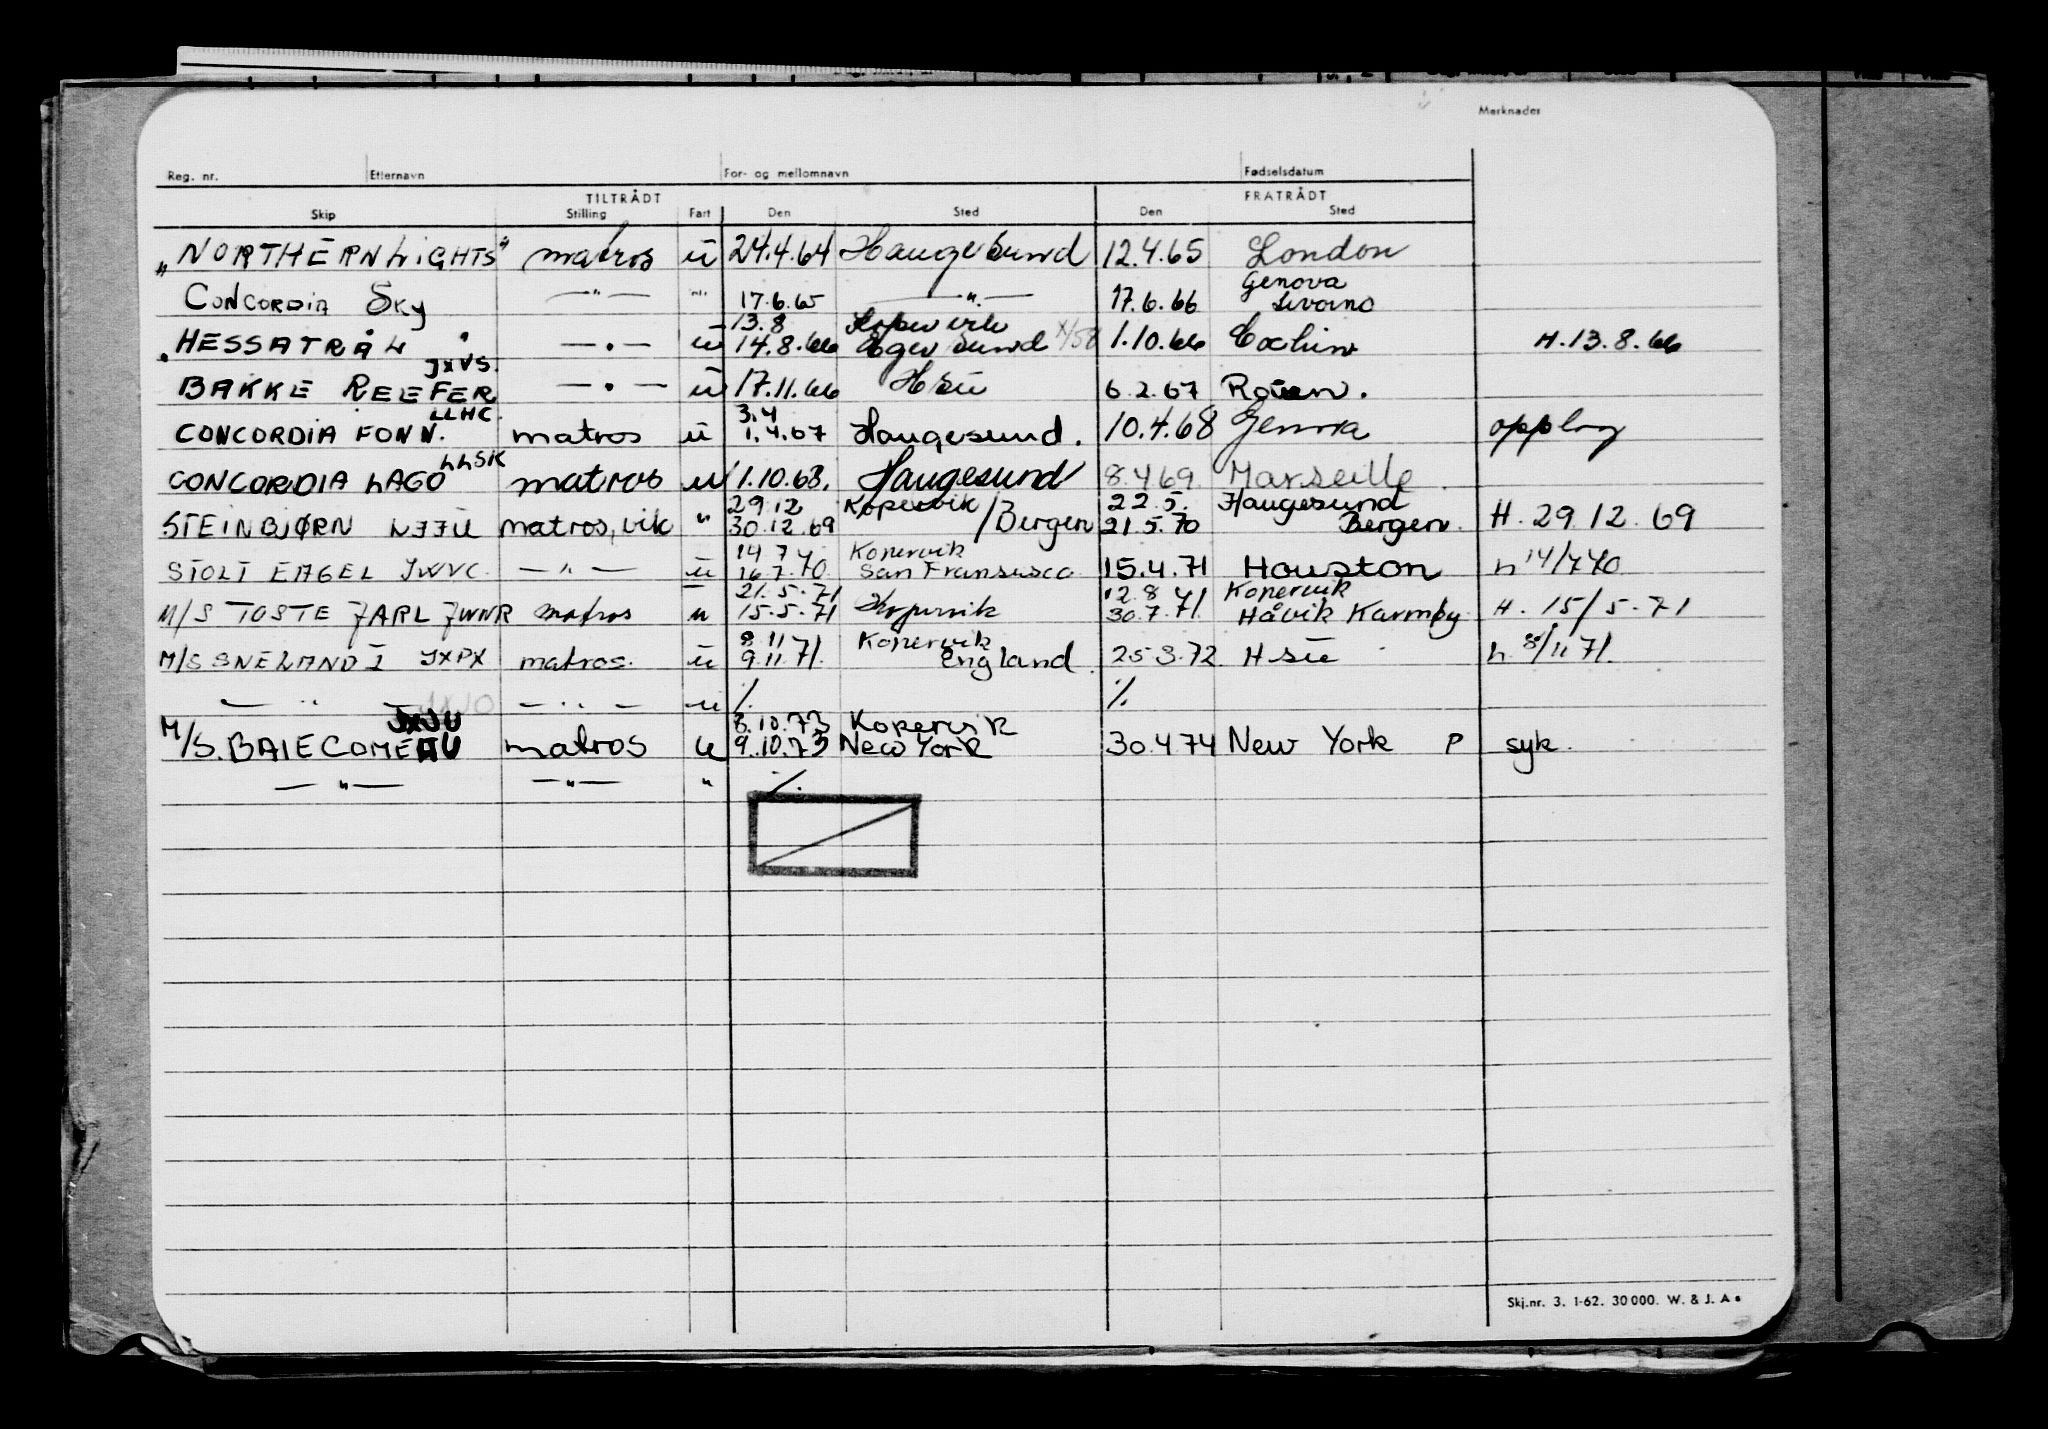 Merknader
Reg. nr. Etternavn For- og mellomnavn Fødselsdatum
TILTRÅDT FRATRÅDT
Skip Stilling Fart Den Sted Den Sted
"NORTHERN LIGHTS" matros ü 24.4.64 Haugesund 12.4.65 London
Genova
CONCORDIA SKY — " — "" 17.6.65 — " — 17.6.66 Livorno
13.8 Kopervik
"HESSATRÅL" — " — ü 14.8.66 Egersund 1.10.66 Cochin H.13.8.66
JXVS.
BAKKE REEFER — " — ü 17.11.66 Hsu 6.2.67 Rouen.
LLHC. 3.4
CONCORDIA FONN. matros ü 1.4.67 Haugesund. 10.4.68 Genova opplag
LLSK
CONCORDIA LAGO matros u 1.10.68. Haugesund 8.4.69. Marseille.
29.12 Kopervik 22.5. Haugesund
STEINBJØRN LJJU matros, vik " 30.12.69 /Bergen 21.5.70 Bergen. H. 29.12.69
14 7 Kopervik
STOLT EAGEL JWVC — " — ü 16.7.70. San Fransisco 15.4.71 Houston h 14/7 70
21.5.71 12.8 Kopervik
M/S TOSTE JARL JWNR matros u 15.5.71 Kopervik 30.7.71. Håvik Karmøy H. 15/5.71
8.11 Kopervik
M/S SNELAND I JXPX matros. ü 9.11.71. England. 25.3.72. Hsu h. 8/11 71.
— " — — " — u % %
JXJU 8.10.73 Kopervik
M/S. BAIE COMEAU matros u 9.10.73 New York 30.4.74 New York P syk.
— " — — " — " %
Skj.nr. 3. 1-62. 30 000. W. & J. A.